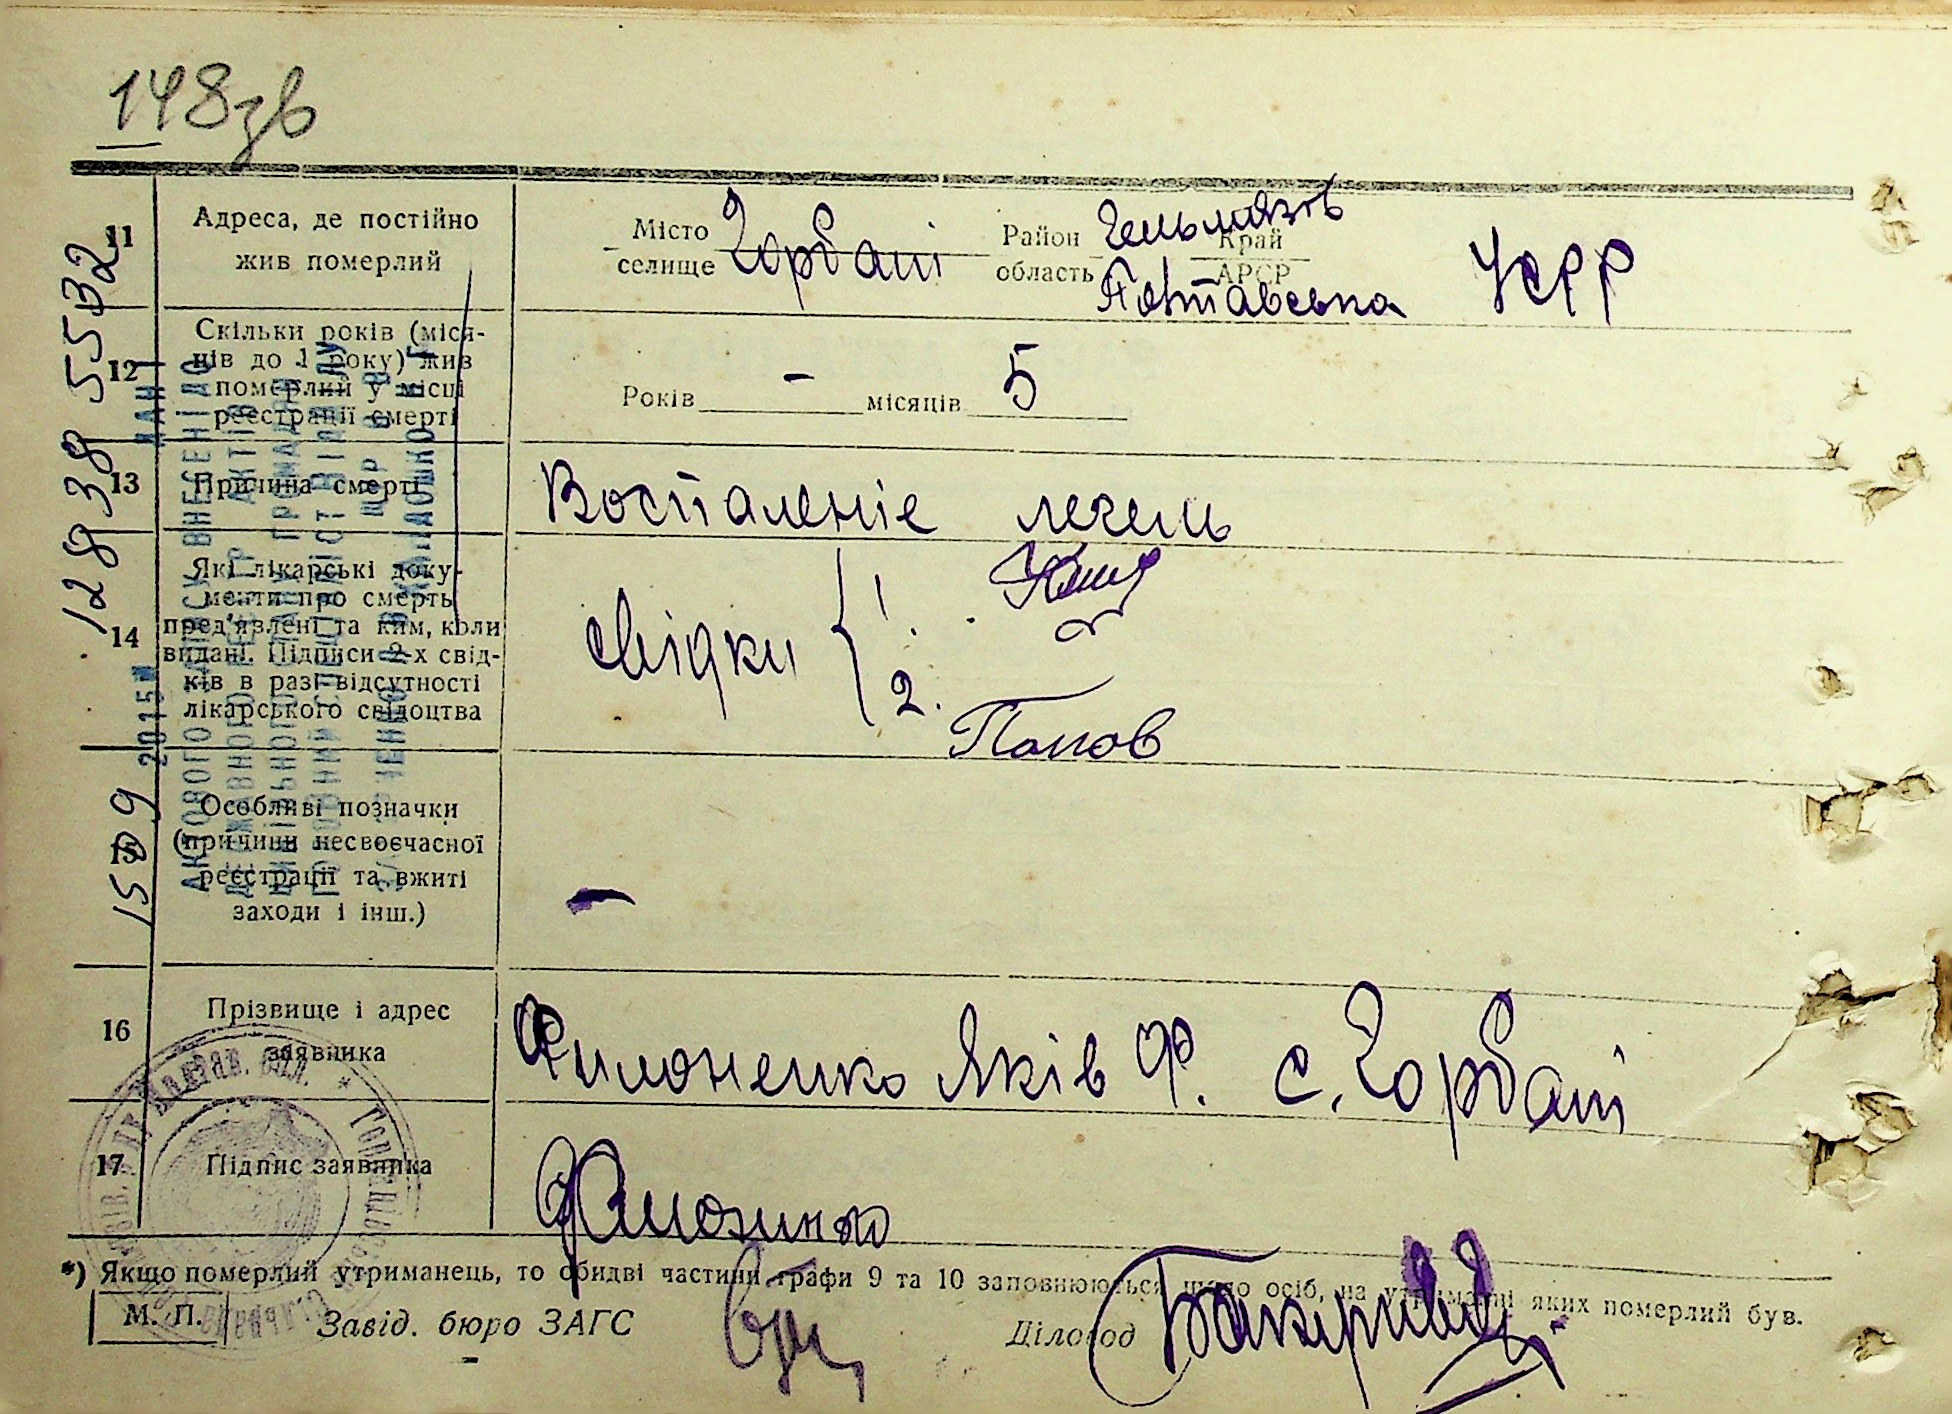 148зв
11
Адреса, де постійно
жив померлий
Місто
селище
Горбані
Район
область
Гельмязів
Полтавська
Край
АРСР
УСРР
12
Скільки років (міся-
ців до 1 року) жив
померлий у місці
реєстрації смерті
Років - місяців 5
13
Причина смерті
Воспаленіе легень
14
Які лікарські доку-
менти про смерть
пред'явлені та ким, коли
видані. Підписи 2-х свід-
ків в разі відсутності
лікарського свідоцтва
свідки
1.
2. Попов
15
Особливі позначки
(причини несвоєчасної
реєстрації та вжиті
заходи і інш.)
-
16
Прізвище і адрес
заявника
Филоненко Яків Ф. с. Горбані
17
Підпис заявника
*) Якщо померлий утриманець, то обидві частини графи 9 та 10 заповнюються щодо осіб, на утриманні яких померлий був.
М. П.
Завід. бюро ЗАГС
Діловод
128 38 5532
1509
2015
АКТОВОГО ЗАПИСУ ВНЕСЕНІ ДО